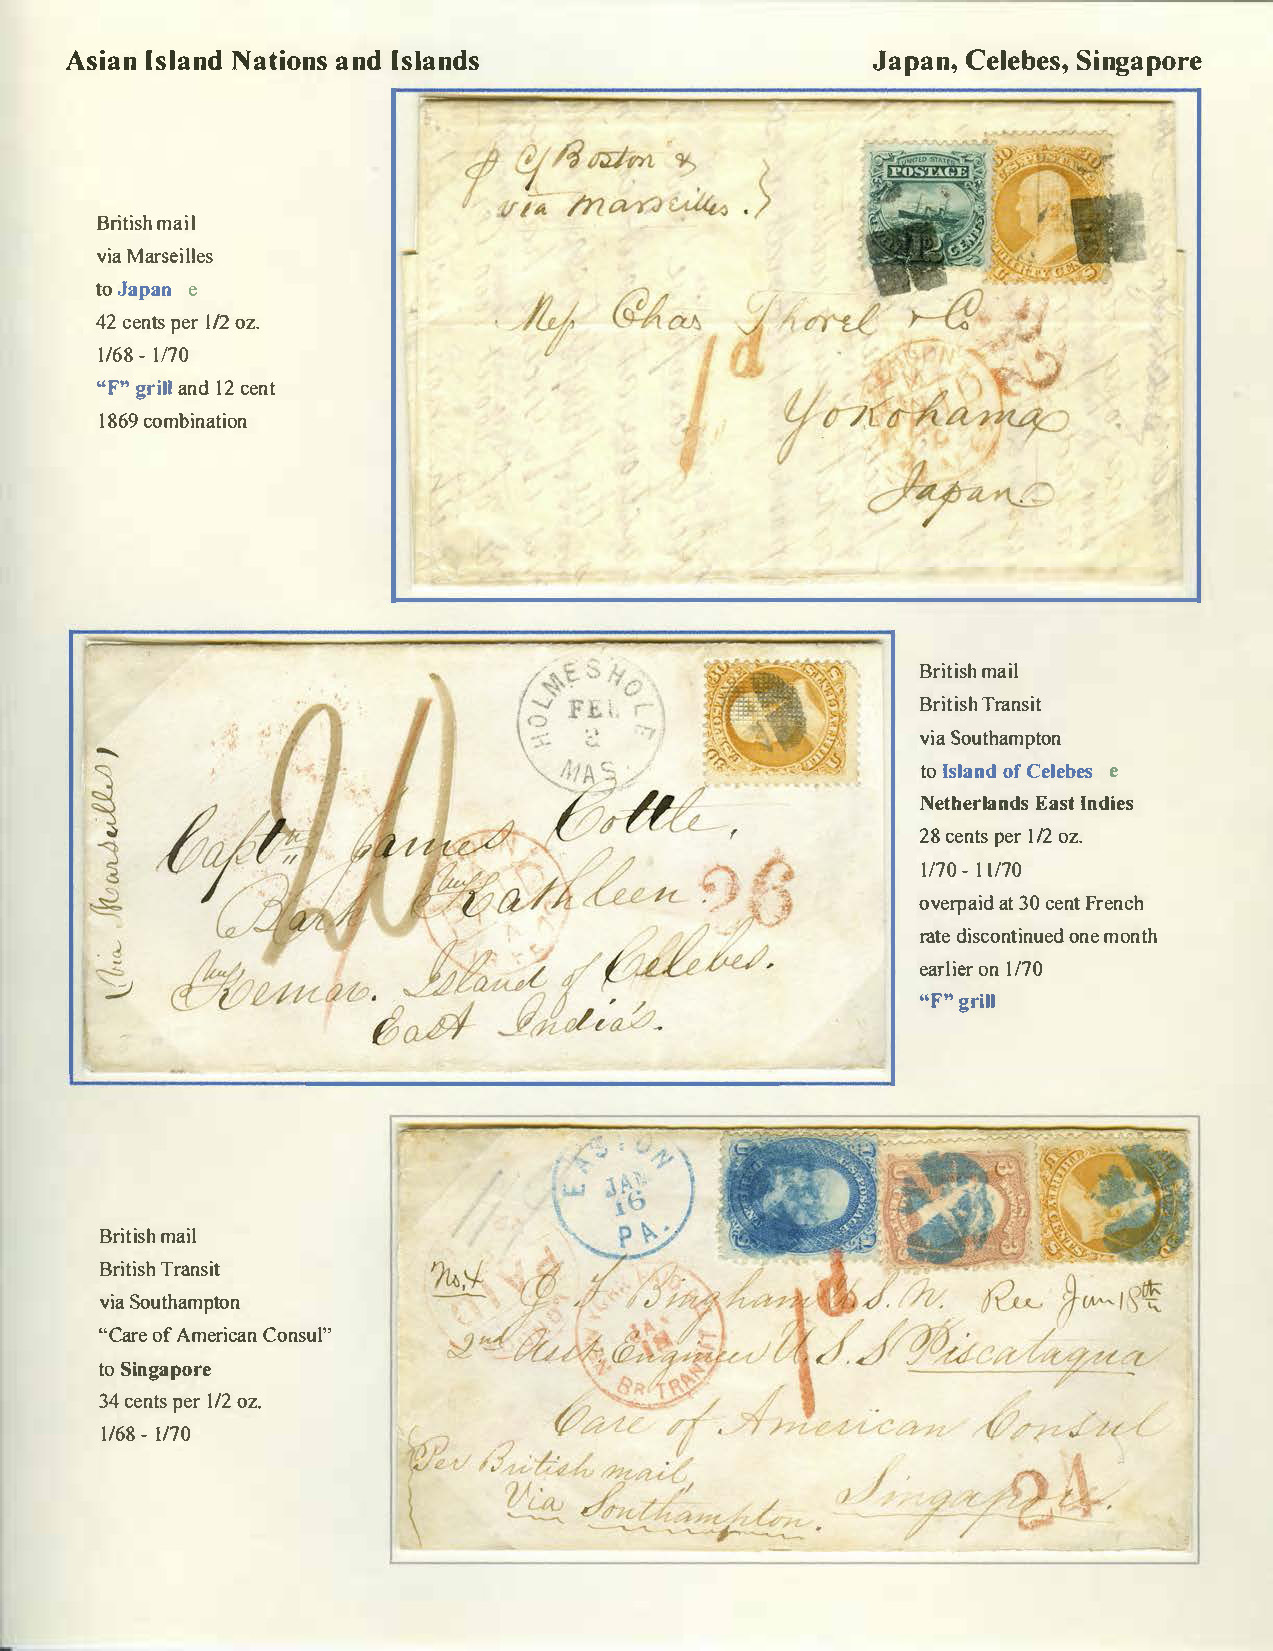 Asian Island Nations and Islands
Japan, Celebes, Singapore
British mail
via Marseilles
to Japan e
42 cents per 1/2 oz.
1/68 - 1/70
“F” grill and 12 cent
1869 combination
Boston &
via Marseilles.
UNITED STATES
POSTAGE
CENTS
Chas Thorel & Co
1d
Yokohama
Japan
British mail
British Transit
via Southampton
to Island of Celebes e
Netherlands East Indies
28 cents per 1/2 oz.
1/70 - 11/70
overpaid at 30 cent French
rate discontinued one month
earlier on 1/70
“F” grill
(Via Marseilles)
HOLMES HOLE
MAS
Captn James Cottle,
Bark Kathleen.
26
Kemar. Island of Celebes.
East India's.
British mail
British Transit
via Southampton
“Care of American Consul”
to Singapore
34 cents per 1/2 oz.
1/68 - 1/70
EASTON
JAN
16
PA.
No. 4
G F Bingham U.S.N. Rec Jan 18th
1d
2nd Asst. Engineer U.S.S Piscataqua
BR TRANSIT
Care of American Consul
Per British mail,
Via Southampton.
Singapore.
24